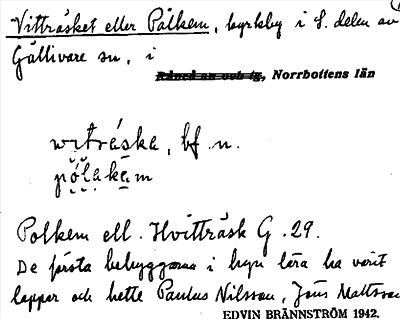 Vitträsket eller Pålkem, byrkby i S. delen av
Gällivare sn, i
Råneå sn och tg, Norrbottens län
witráska, bf. n.
pólakäm
Polkem ell. Hvitträsk G. 29.
De första bebyggarna i byn lära ha varit
lappar och hette Paulus Nilsson, Jöns Mattsson
EDVIN BRÄNNSTRÖM 1942.